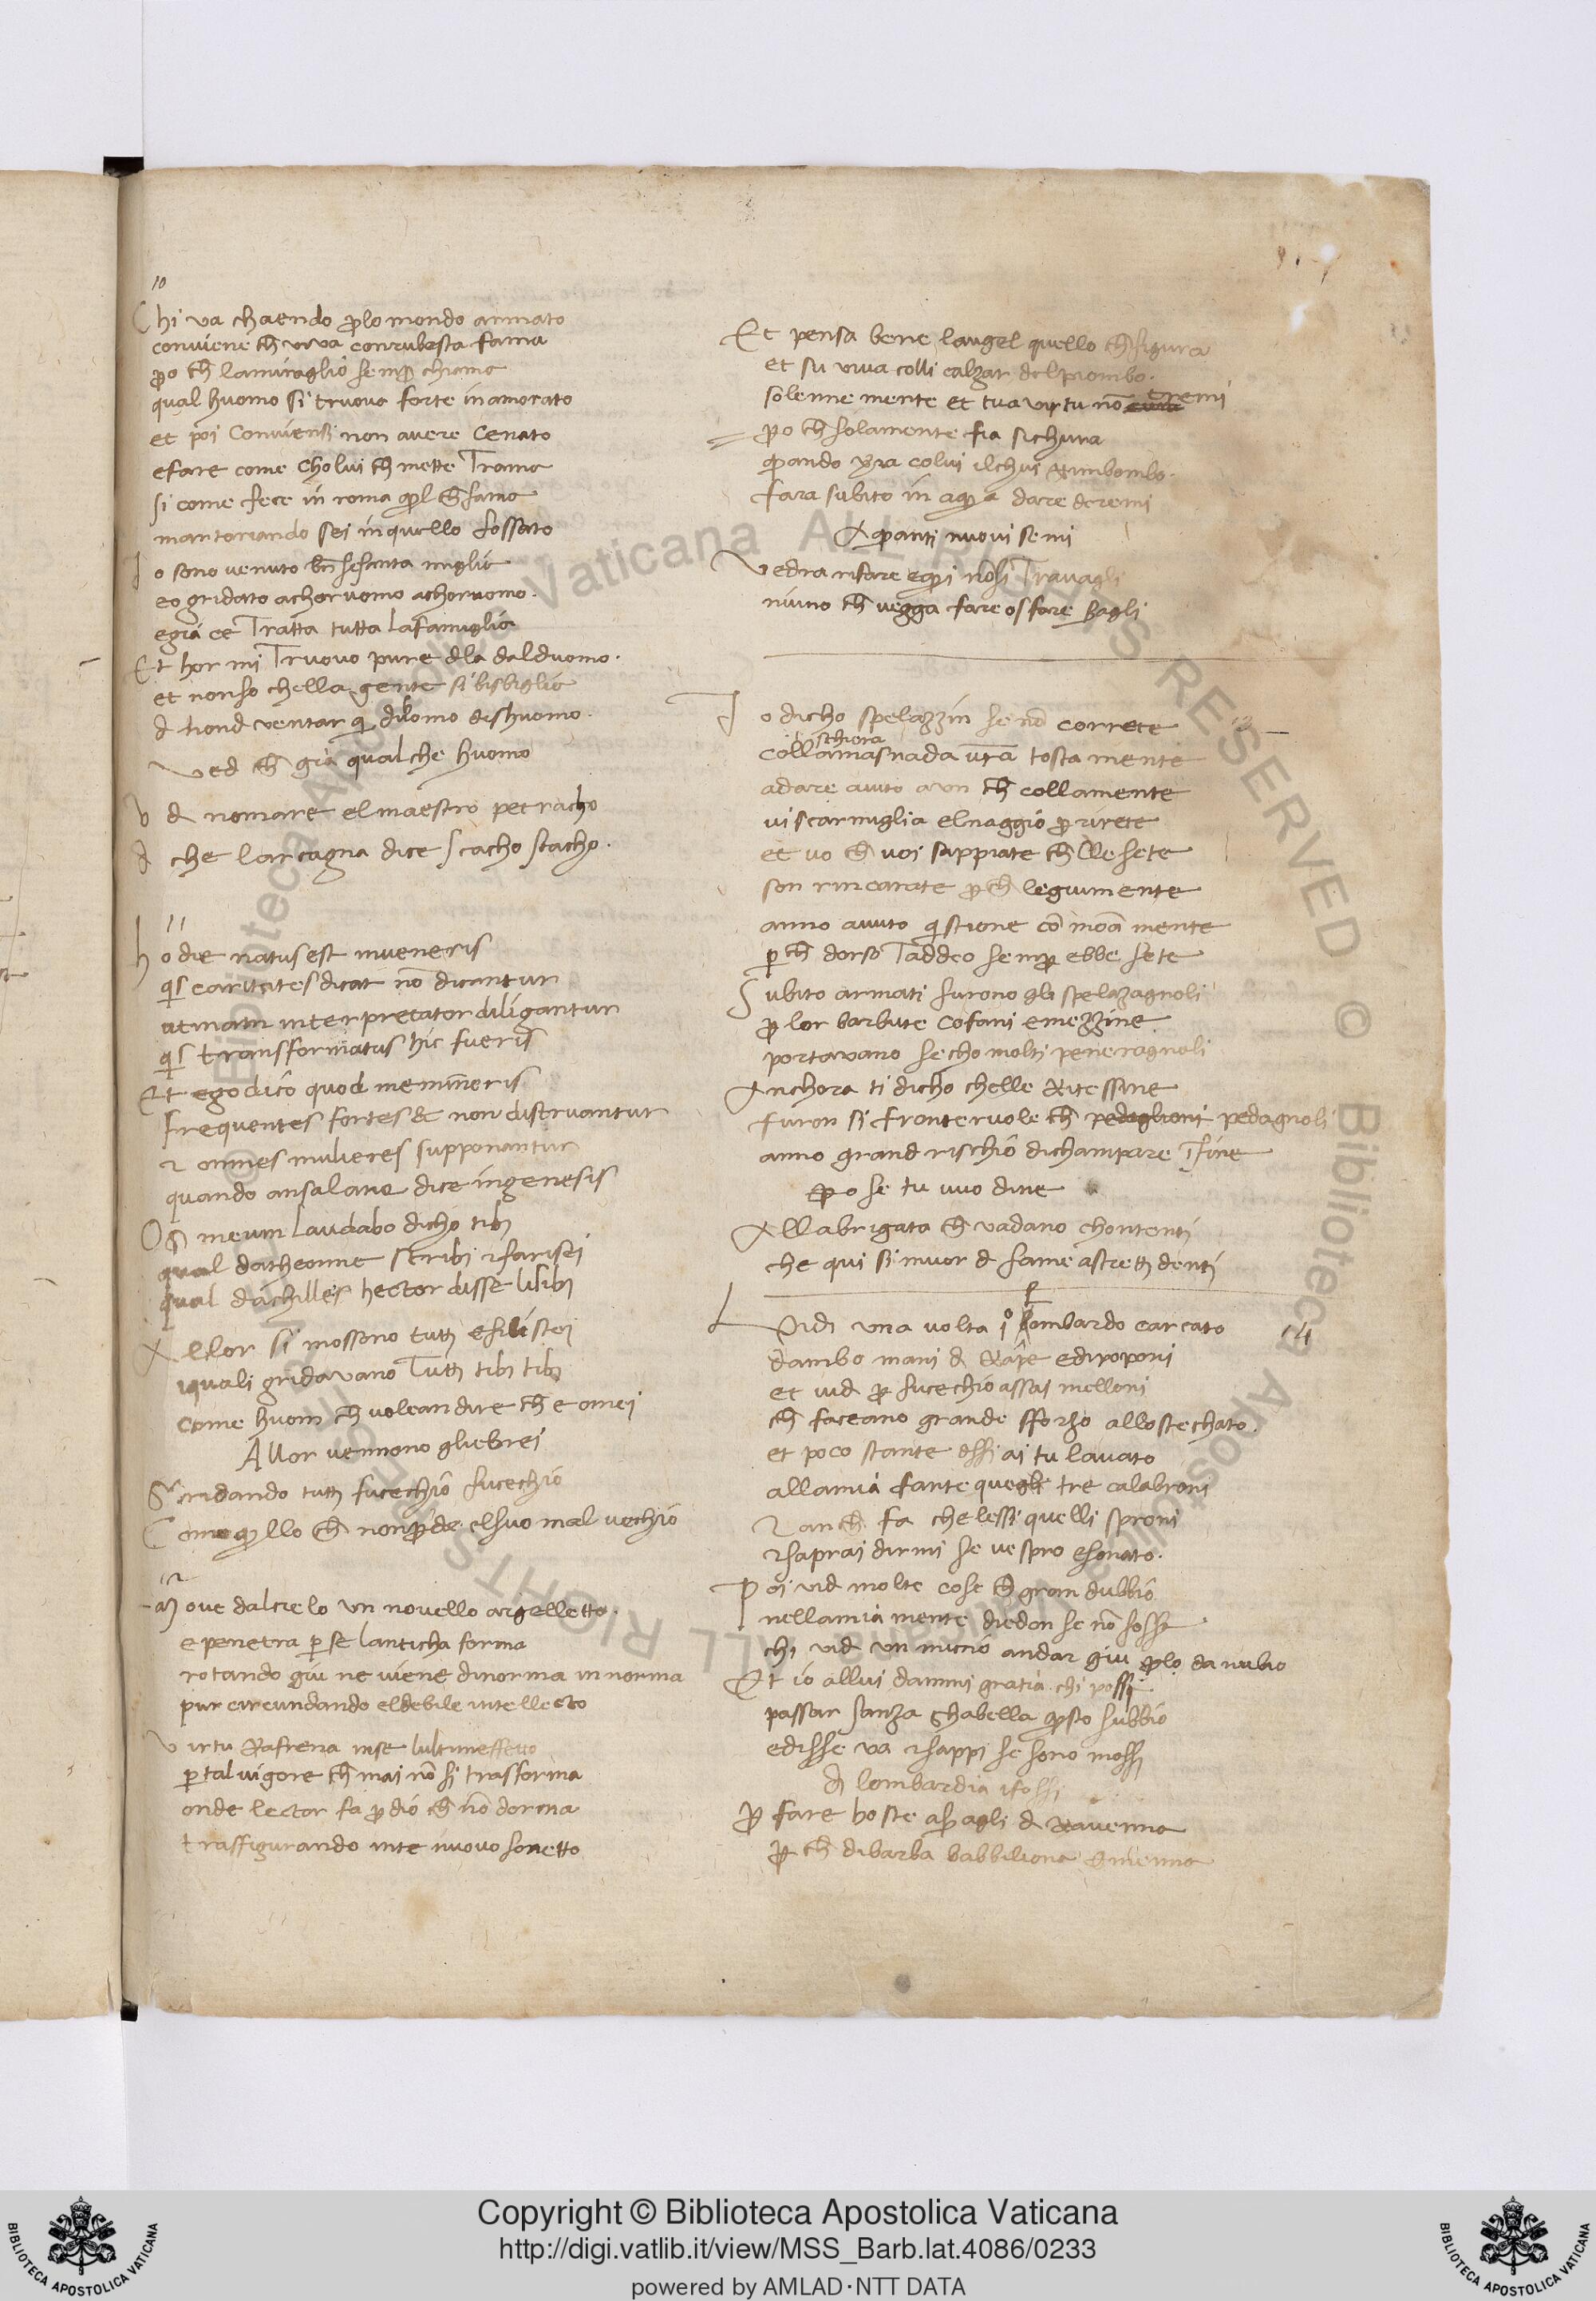 10
Chi va chaendo plo mondo armato
conviene ch viva con rubesta fama
po ch lamiraglio semp chiama
qual huomo si truova forte inamorato
et poi Conviensi non avere Cenato
efare come Cholui ch mette Trama
si come fece in roma
martoriando sei inquello fossato
Io sono venuto ben sesanta miglia
eo gridato achoruomo achoruomo.
egia ce Tratta tutta Lafamiglia
Et hor mi Truovo pure dla dalduomo.
et nonso chella gente si bisbiglia
ventar
Ved ch gia qualche huomo
V d nomare elmaestro petracho
d che larcagna dice scacho scacho.
11
hodie natus est inveneris
qis caritates dicat no dicantur
utinam interpretator diligantur
qis transformatus hic fueris
Et ego dico quod memineris
frequentes fortes & non diservantur
2 omnes mulieres supponantur
quando ansalana dice ingenesis
Os meum laudabo dicho tibi
qual scribi 2 farisei
qual dachilles hector disse
Allor si mossono tutti efilistei
iquali gridavano Tutti tibi tibi
come huom ch volean dire ch e omei
Allor vennono gliebrei
Gridando tutti fucechio fucechio
Come qllo ch non pde elsuo mal vechio
12
Move dalcielo un novello argelletto.
e penetra p se lanticha forma
rotando giu ne viene dinorma in norma
pur circundando eldebile intellecto
Virtu Rafrena inse lultimeffetto
p tal vigore ch mai no si trasforma
onde lector fa p dio ch no dorma
trasfigurando inte nuovo sonetto
Et pensa bene langel quello ch figura
et su viva colli calzar delpiombo.
solenne mente et tua virtu no tremi
po ch solamente fia sichura
quando colui ilchui Rimbombo.
fara subito in aqua dare deremi
A quanti nuovi semi
Vedra rifare Travagli
niuno ch vegga fare osfare Bagli
Io dicho spelazzin se no correte
13
schiera
collamasnada vra tosta mente
adare aiuto a un ch collamente
vi scarmiglia elnaggio p rirete
et vo ch voi sappiate ch lle sete
son rincarate p ch legiumente
anno avuto qistione co moa mente
p ch dorso Taddeo semp ebbe sete
Subito armati furono gli spelazagnoli
p lor barbute Cofani emezzine
portavano secho molti peneragnoli
Anchora ti dicho chelle Ritessine
furon si frontervole ch pedaglioni pedagnoli
anno grand rischio dichampare ifine
Epo se tu vuo dire
Allabrigata ch vadano chontenti
che qui si muor d fame astretti denti
Vidi una volta 1o lombardo carcato
14
dambo mani d Rape ediroponi
et vid p fucechio assai melloni
ch faceano grande sforzo allostechato.
et poco stante dissi ai tu lavato
allamia fante quegli tre calabroni
2 anch fa che lessi quelli sproni
2 saprai dirmi se vespro esonato.
Poi vid molte cose ch gran dubbio
nellamia mente diedon se no fosse
chi vid un mucio andar giu plo danubio
Et io allui dammi gratia chi possi
passar sanza ghabella qsto subbio
edisse va 2 sappi se sono mossi
di lombardia ifossi
P fare hoste asparagli d Ravenna
p ch dibarba babbiliona
Copyright © Biblioteca Apostolica Vaticana
http://digi.vatlib.it/view/MSS_Barb.lat.4086/0233
powered by AMLAD·NTT DATA
BIBLIOTECA APOSTOLICA VATICANA
BIBLIOTECA APOSTOLICA VATICANA
© Biblioteca Apostolica Vaticana ALL RIGHTS RESERVED © Biblioteca Apostolica Vaticana ALL RIGHTS RESERVED